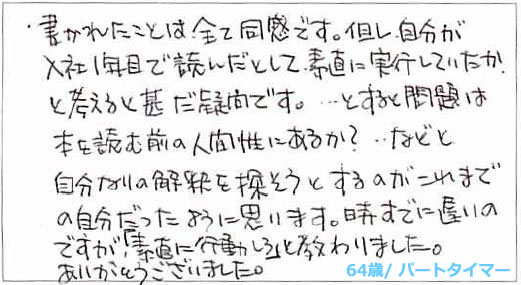 ・書かれたことは全て同感です。但し、自分が
入社1年目で読んだとして、素直に実行していたか
と考えると甚だ疑問です。…とすると問題は
本を読む前の人間性にあるか?‥などと
自分なりの解釈を探そうとするのがこれまで
の自分だったように思います。時すでに遅いの
ですが「素直に行動しろ」と教わりました。
ありがとうございました。
64歳/ パートタイマー